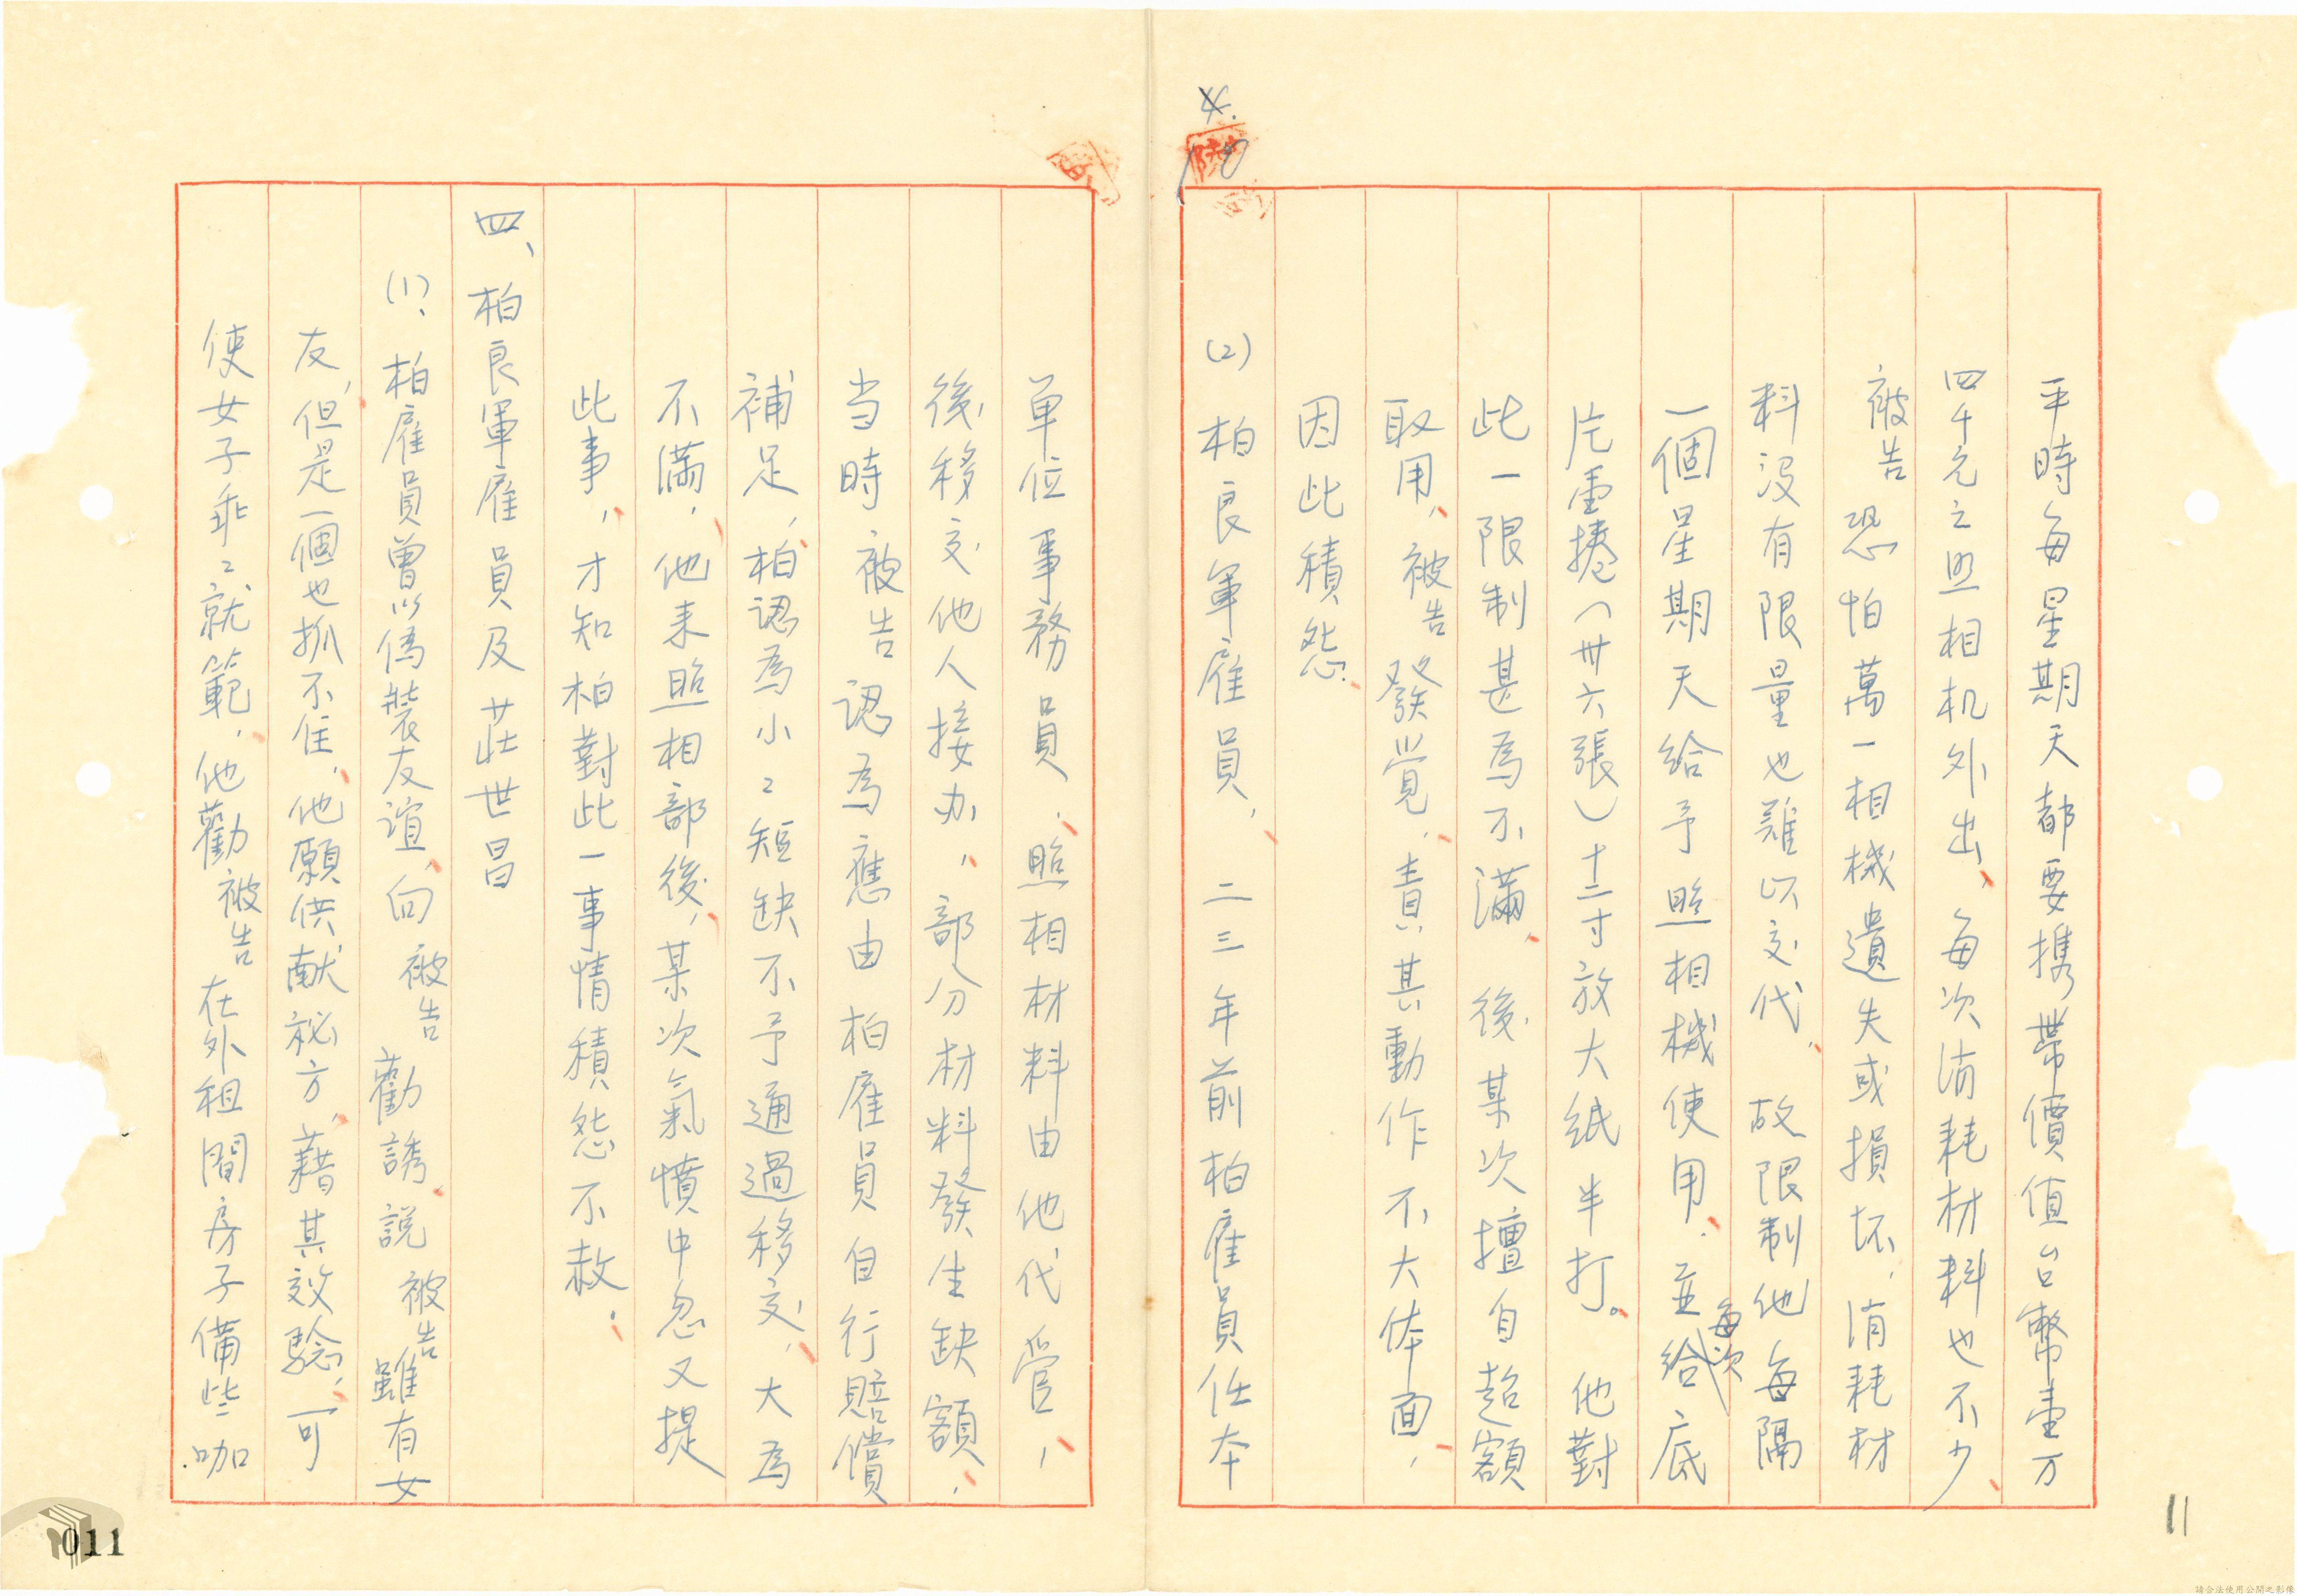 平時每星期天都要携帶價值台幣壹万
四千元之照相机外出，每次消耗材料也不少，
被告恐怕萬一相機遺失或損坏，消耗材
料没有限量也難以交代，故限制他每隔
一個星期天給予照相機使用，並給每次底
片壹捲（卅六張）十二寸放大紙半打。他對
此一限制甚為不滿，後某次擅自超額
取用，被告發覚，責其動作不大体面，
因此積怨．
(2) 柏良軍雇員，二三年前柏雇員任本
单位事務員，照相材料由他代管，
後移交他人接办，部分材料發生缺額，
当時被告認為應由柏雇員自行賠償
補足，柏認為小〻短缺不予通過移交，大為
不滿，他来照相部後，某次氣憤中忽又提
此事，才知柏對此一事情積怨不赦．
四、柏良軍雇員及莊世昌
(1)、柏雇員曾以偽裝友誼，向被告勸誘，説被告雖有女
友，但是一個也抓不住，他願供献祕方，藉其效驗，可
使女子乖〻就範，他勸被告在外租間房子備些咖
4.
10
11
011
請合法使用公開之影像